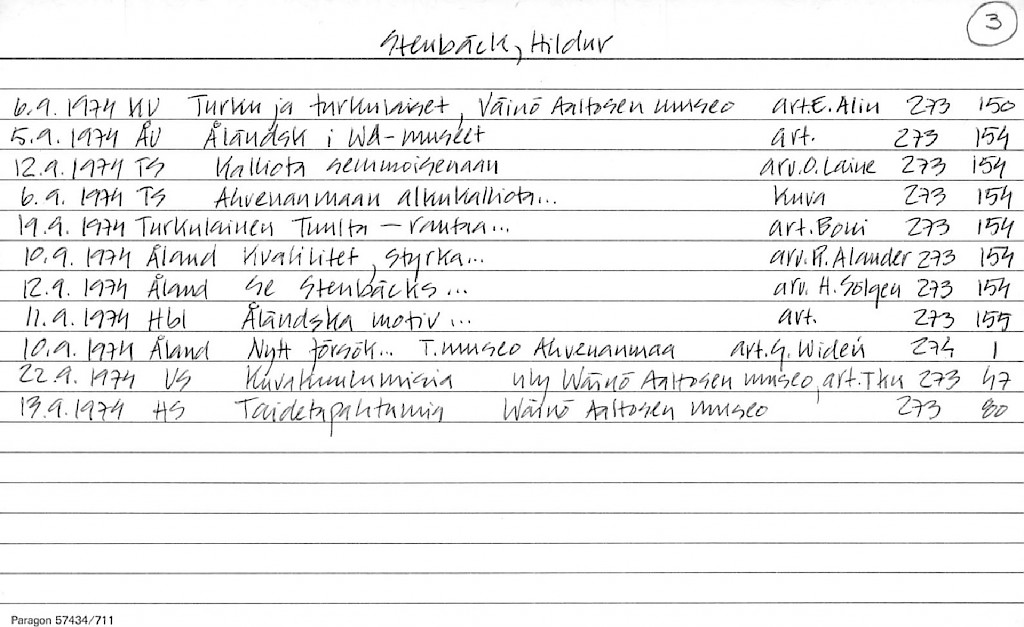 3
Stenbäck, Hildur
6.9. 1974 KU Turku ja turkulaiset, Väinö Aaltosen museo art. E. Alin 273 150
5.9. 1974 ÅU Åländsk i WA-museet art. 273 154
12.9. 1974 TS Kalliota semmoisenaan arv. O. Laine 273 154
6.9. 1974 TS Ahvenanmaan alkukalliota... kuva 273 154
19.9. 1974 Turkulainen Tuulta - rantaa... art. Boui 273 154
10.9. 1974 Åland Kvalilitet, styrka... arv. R. Alander 273 154
12.9. 1974 Åland Se Stenbäcks... arv. H. Sölgen 273 154
11.9. 1974 Hbl Åländska motiv... art. 273 155
10.9. 1974 Åland Nytt försök... T. museo Ahvenanmaa art. G. Widén 274 1
22.9. 1974 US Kuvakuulumisia näy Wäinö Aaltosen museo, art. Tku 273 47
13.9. 1974 HS Taidetapahtumia Wäinö Aaltosen museo 273 80
Paragon 57434/711